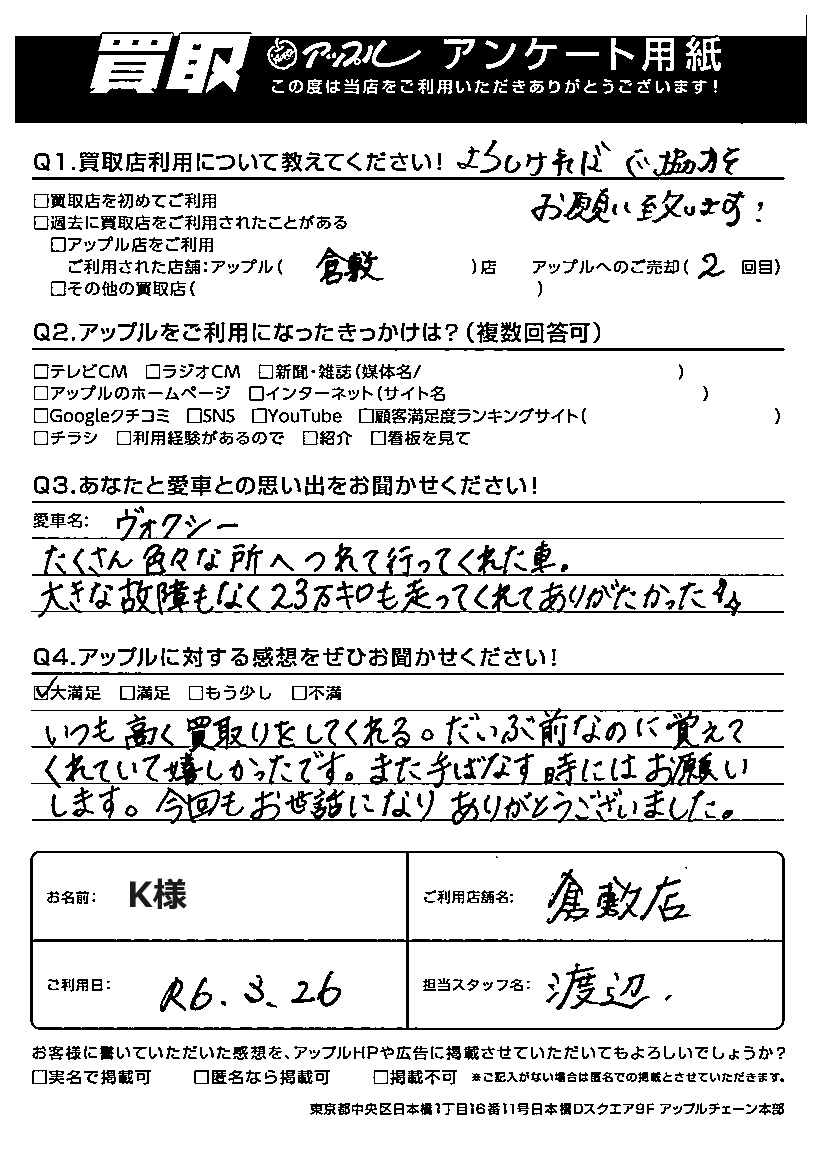 買取 アップル アンケート用紙
この度は当店をご利用いただきありがとうございます!
Q1.買取店利用について教えてください! よろしければ ご協力を
□買取店を初めてご利用 お願い致します!
□過去に買取店をご利用されたことがある
□アップル店をご利用
ご利用された店舗:アップル( 倉敷 )店 アップルへのご売却( 2 回目)
□その他の買取店( )
Q2.アップルをご利用になったきっかけは?(複数回答可)
□テレビCM □ラジオCM □新聞・雑誌(媒体名/ )
□アップルのホームページ □インターネット(サイト名 )
□Googleクチコミ □SNS □YouTube □顧客満足度ランキングサイト( )
□チラシ □利用経験があるので □紹介 □看板を見て
Q3.あなたと愛車との思い出をお聞かせください!
愛車名: ヴォクシー
たくさん色々な所へつれて行ってくれた車。
大きな故障もなく23万キロも走ってくれてありがたかった
Q4.アップルに対する感想をぜひお聞かせください!
☑大満足 □満足 □もう少し □不満
いつも高く買取りをしてくれる。だいぶ前なのに覚えて
くれていて嬉しかったです。また手ばなす時にはお願い
します。今回もお世話になりありがとうございました。
お名前: K様 ご利用店舗名: 倉敷店
ご利用日: R6.3.26 担当スタッフ名: 渡辺.
お客様に書いていただいた感想を、アップルHPや広告に掲載させていただいてもよろしいでしょうか?
□実名で掲載可 □匿名なら掲載可 □掲載不可 ※ご記入がない場合は匿名での掲載とさせていただきます。
東京都中央区日本橋1丁目16番11号日本橋Dスクエア9F アップルチェーン本部